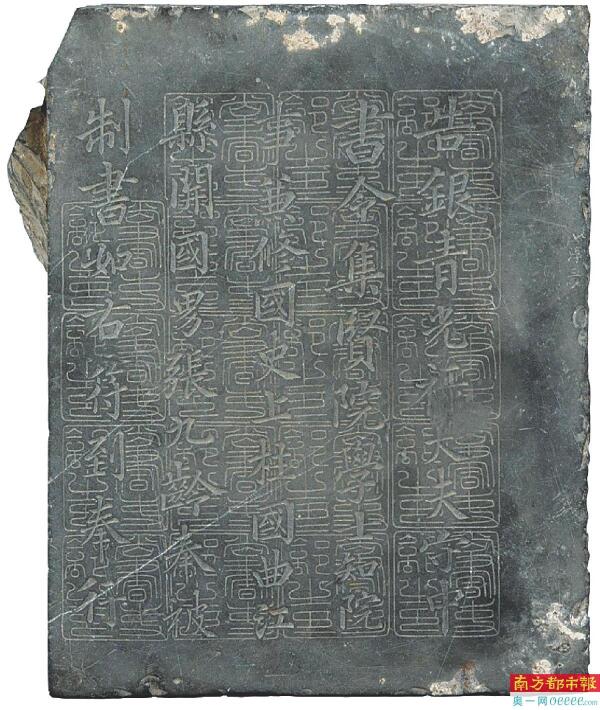 告銀青光祿大夫守中
書令集賢院學士知院
事兼修國史上柱國曲江
縣開國男張九齡奉被
制書如右符到奉行
南方都市報
奥一网oeeee.com